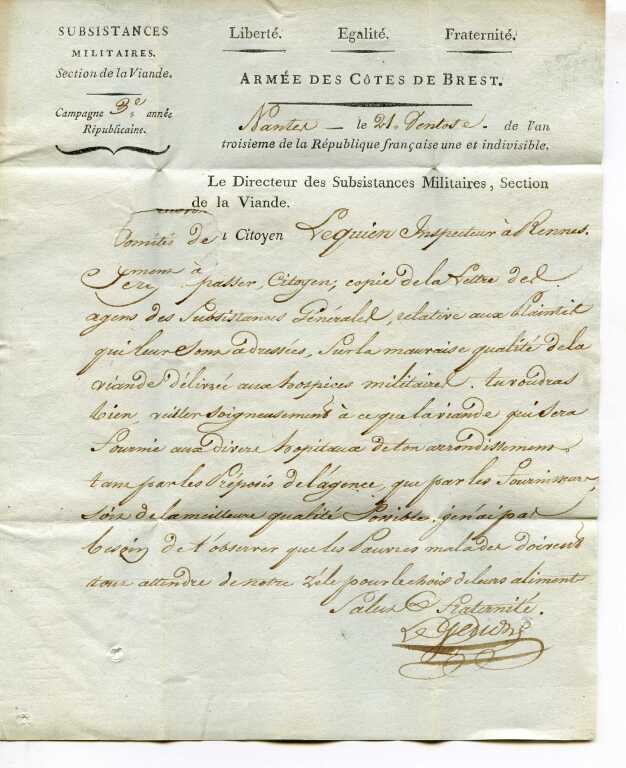 SUBSISTANCES
MILITAIRES.
Section de la Viande.
Campagne 3e année
Républicaine.
Liberté. Egalité. Fraternité.
ARMÉE DES CÔTES DE BREST.
Nantes — le 21. Ventose. de l'an
troisieme de la République française une et indivisible.
Le Directeur des Subsistances Militaires, Section
de la Viande.
Citoyen Lequien Inspecteur à Rennes.
passer, Citoyen, copie de la Lettre des
agens des Subsistances Générales, relative aux plaintes
qui leur sont adressées, Sur la mauvaise qualité de la
viande délivrée aux hospices militaires. tu voudras
bien, veiller soigneusement à ce que la viande qui sera
fournie aux divers hopitaux de ton arrondissement
tant par les Préposés de l'agence, que par les fournisseurs,
soit de la meilleure qualité Possible. je n'ai pas
besoin de t'observer que les Pauvres malades doivent
tout attendre de notre zéle pour le choix de leurs aliments
Salut & fraternité.